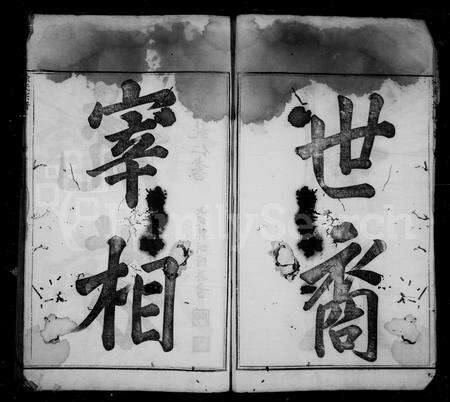 世裔
宰相
FamilySearch